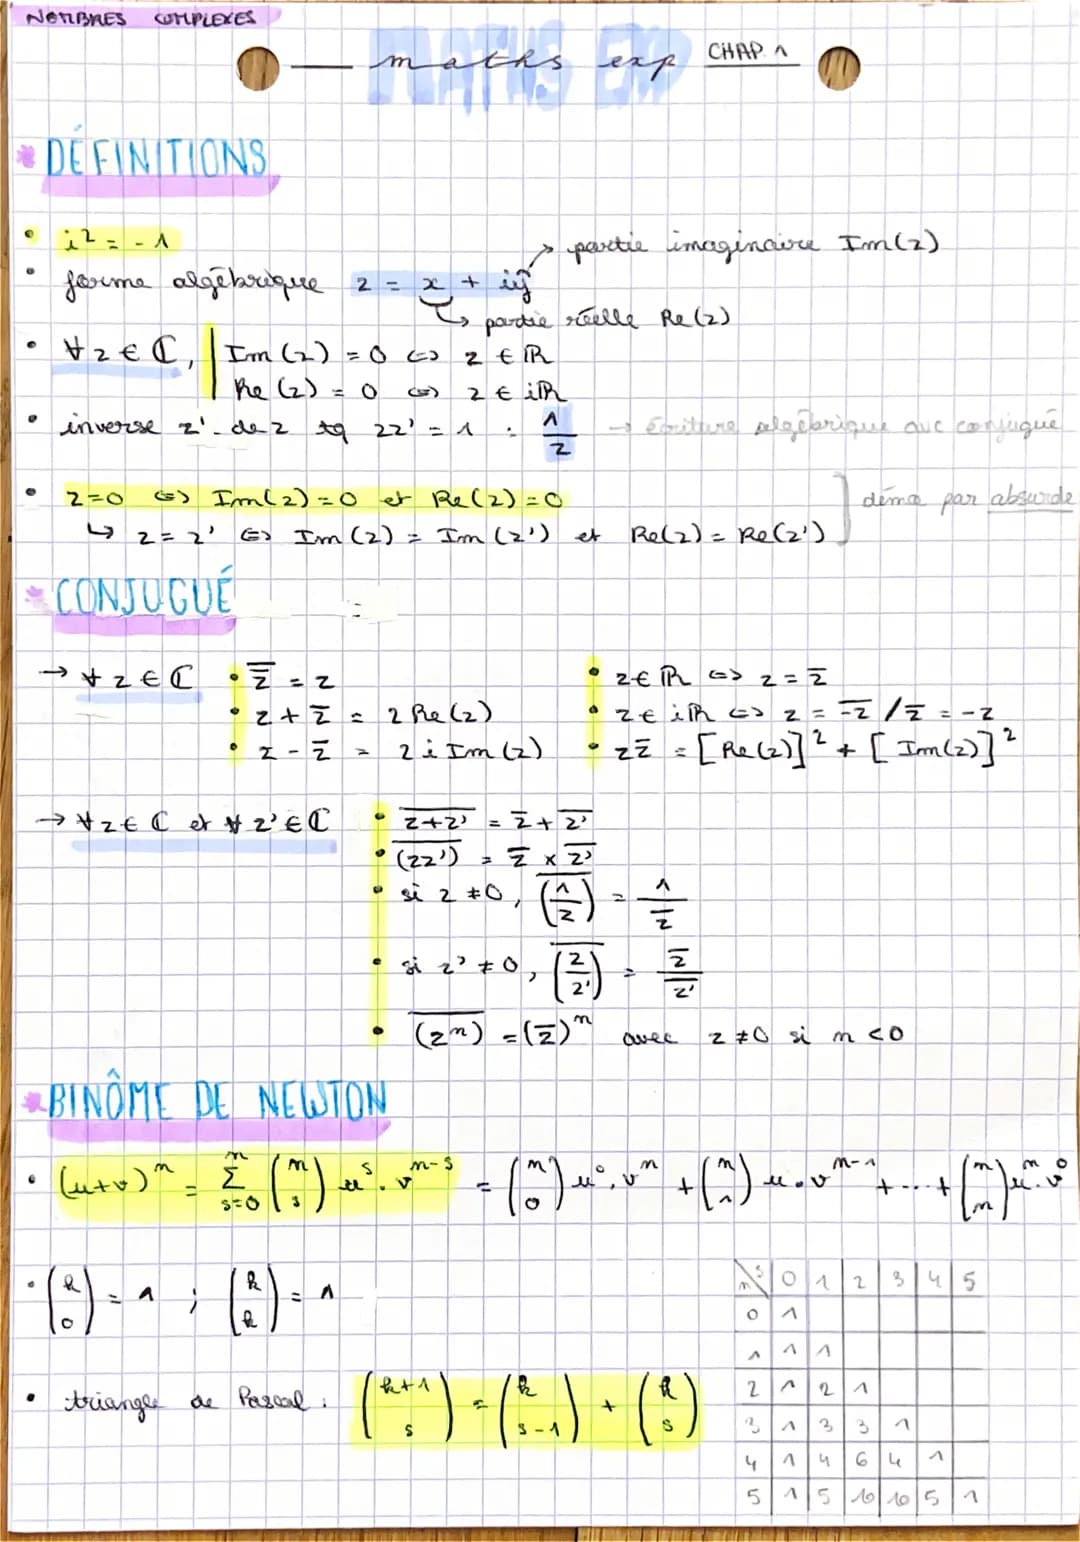 NOMBRES COMPLEXES
MATHS EXP
maths exp CHAP. 1
* DÉFINITIONS
• i² = -1
• forme algébrique z = x + iy → partie imaginaire Im(z)
↳ partie réelle Re(z)
• ∀ z ∈ ℂ, | Im(z) = 0 ⇔ z ∈ ℝ
Re(z) = 0 ⇔ z ∈ iℝ
• inverse z' de z tq zz' = 1 : 1/z → écriture algébrique avc conjugué
• z=0 ⇔ Im(z)=0 et Re(z)=0
↳ z = z' ⇔ Im(z) = Im(z') et Re(z) = Re(z') ] démo par absurde
* CONJUGUÉ
→ ∀ z ∈ ℂ • z̿ = z • z ∈ ℝ ⇔ z = z̅
• z + z̅ = 2 Re(z) • z ∈ iℝ ⇔ z = -z̅ / z̅ = -z
• z - z̅ = 2i Im(z) • zz̅ = [Re(z)]² + [Im(z)]²
→ ∀ z ∈ ℂ et ∀ z' ∈ ℂ • \overline{z+z'} = z̅ + \overline{z'}
• \overline{(zz')} = z̅ × \overline{z'}
• si z ≠ 0, \overline{(1/z)} = 1/z̅
• si z' ≠ 0, \overline{(z/z')} = z̅/\overline{z'}
• \overline{(zⁿ)} = (z̅)ⁿ avec z ≠ 0 si n < 0
* BINÔME DE NEWTON
• (u+v)ⁿ = \sum_{s=0}^{n} \binom{n}{s} u^s . v^{n-s} = \binom{n}{0} u⁰ . vⁿ + \binom{n}{1} u . v^{n-1} + ... + \binom{n}{n} uⁿ . v⁰
• \binom{k}{0} = 1 ; \binom{k}{k} = 1
• triangle de Pascal : \binom{k+1}{s} = \binom{k}{s-1} + \binom{k}{s}
n\s 0 1 2 3 4 5
0 1
1 1 1
2 1 2 1
3 1 3 3 1
4 1 4 6 4 1
5 1 5 10 10 5 1